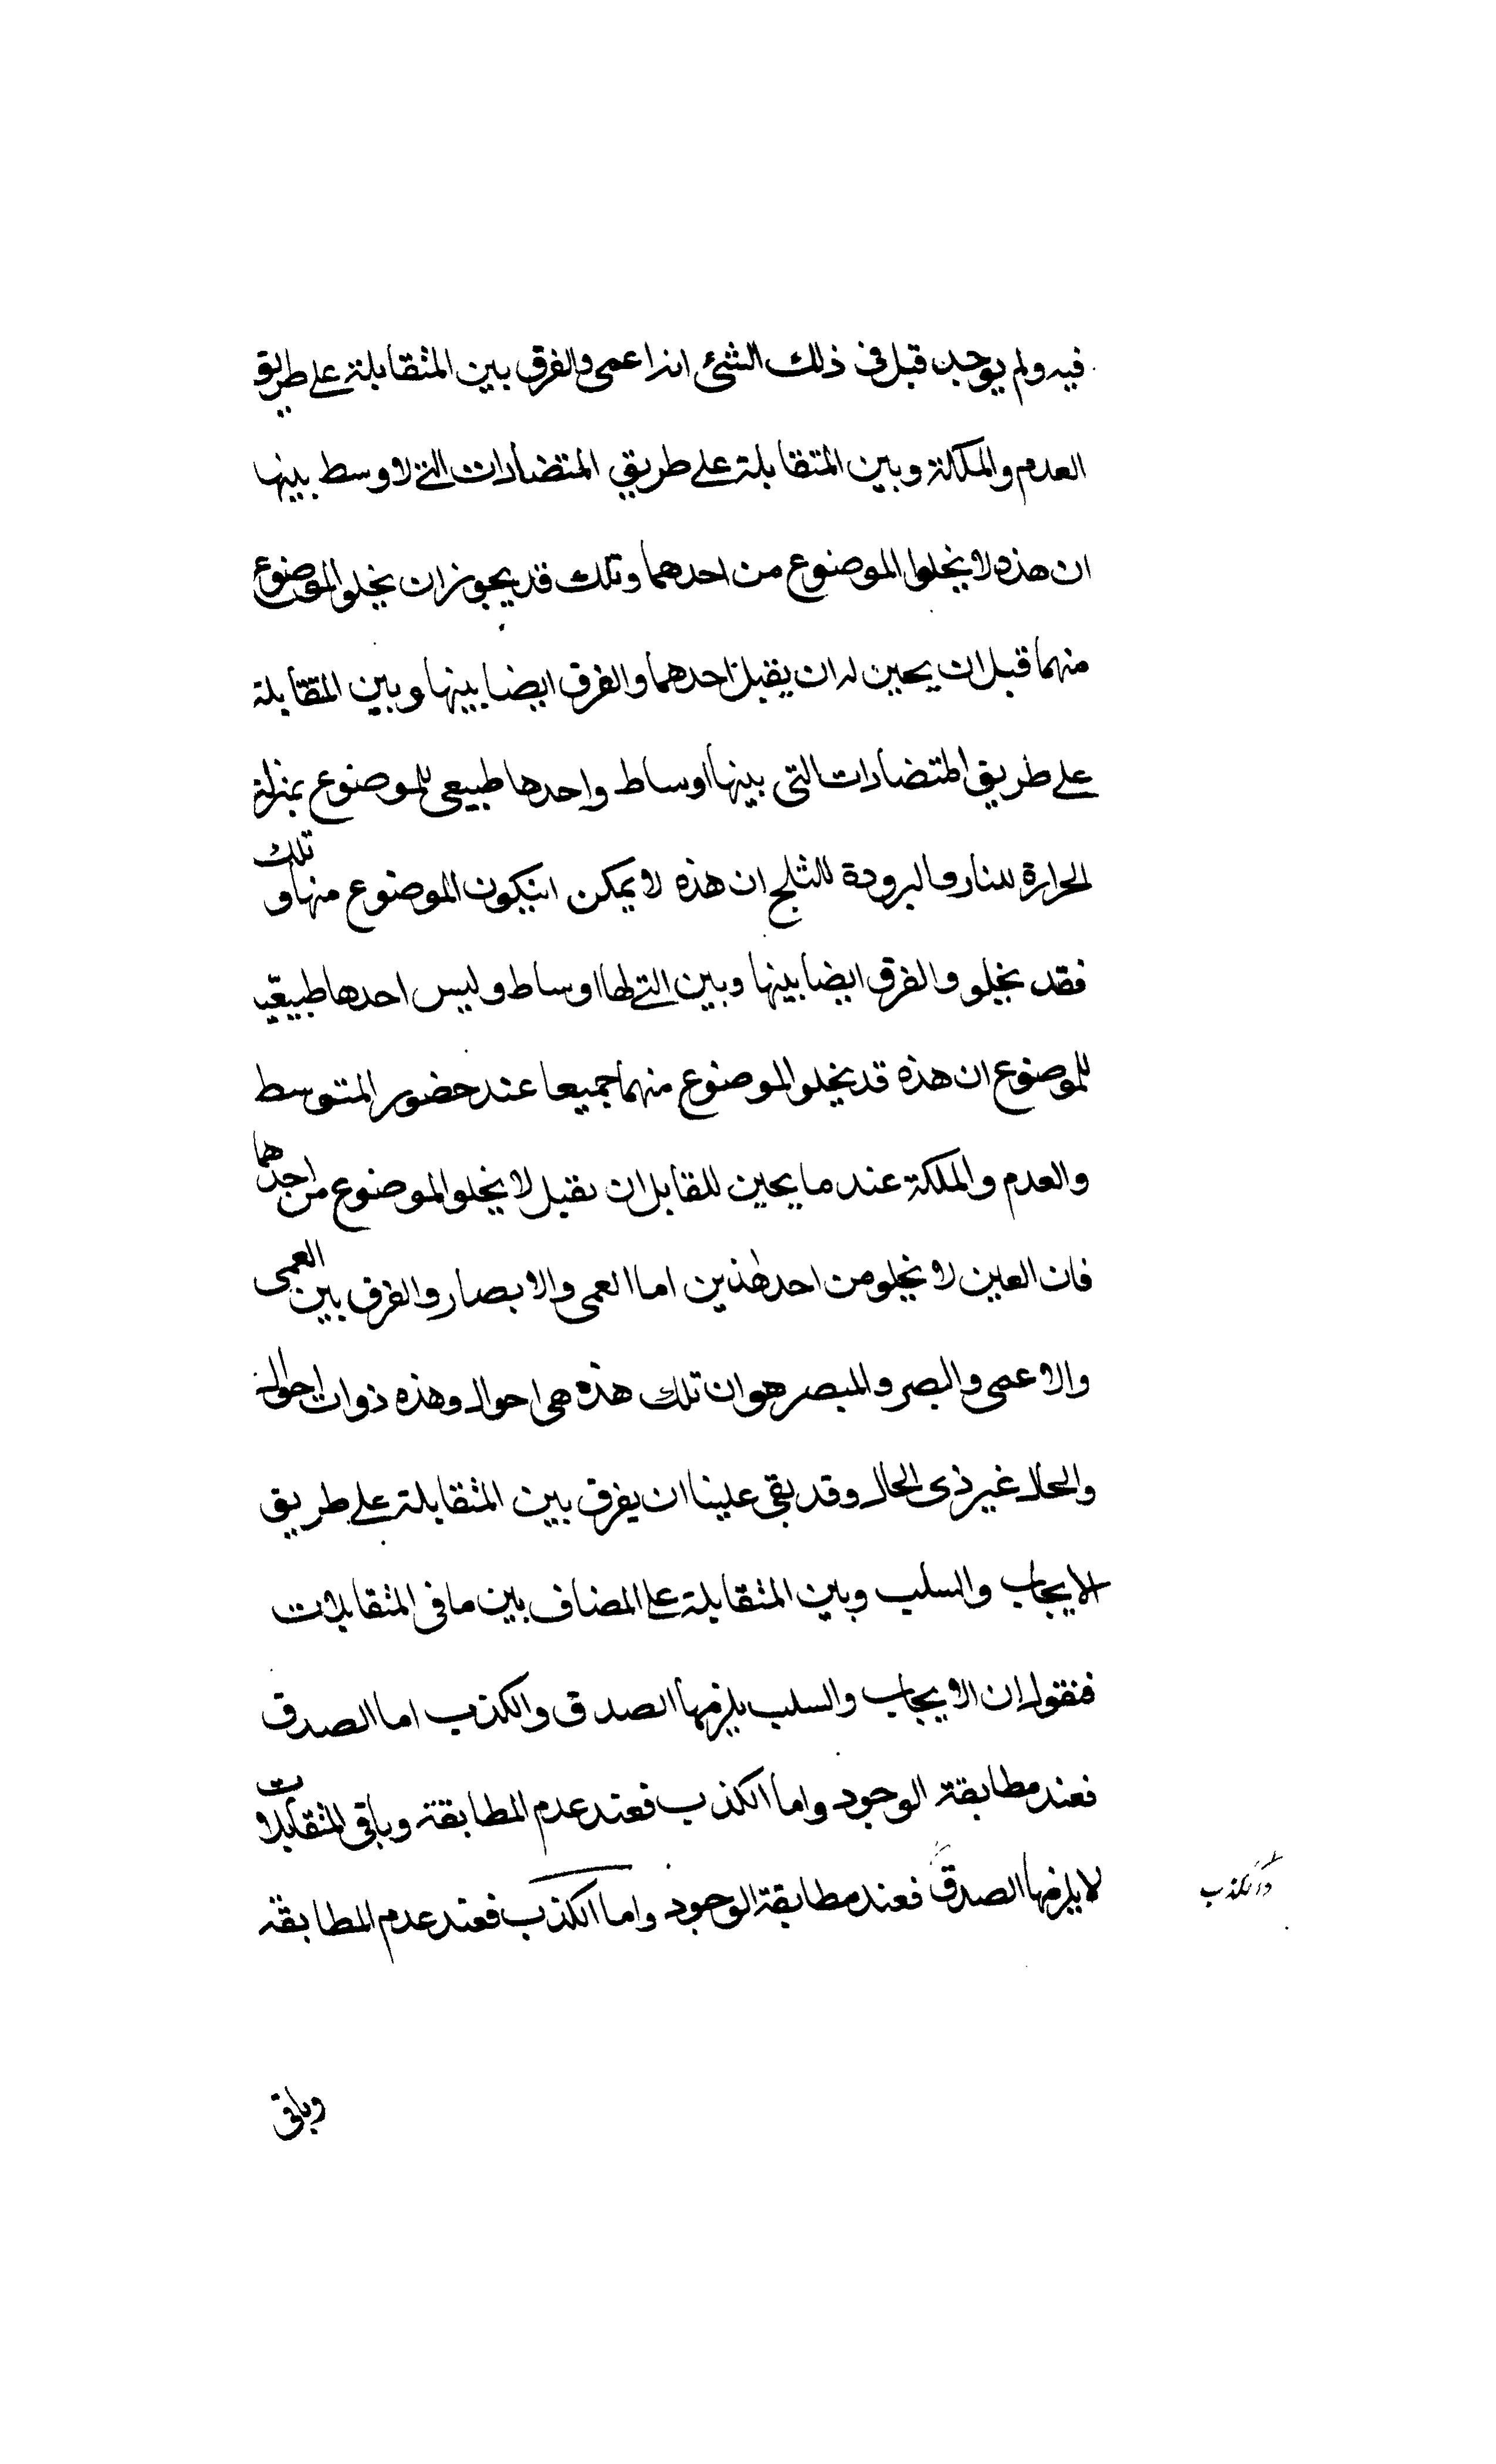 فيه ولم يوجد قبل في ذلك الشئ انه اعمى والفرق بين المتقابلة على طريق
العدم والملكة وبين المتقابلة على طريق المتضادات التي لا وسط بينها
ان هذه لا يخلوا الموضوع من احدهما وتلك قد يجوز ان يخلو الموضوع
منهما قبل ان يحين له ان يقبل احدهما والفرق ايضا بينها وبين المتقابلة
على طريق المتضادات التى بينها اوساط واحدها طبيعى للموضوع بمنزلة
الحرارة للنار والبرودة للثلج ان هذه لا يمكن انيكون الموضوع منها و تلك
فقد يخلو والفرق ايضا بينها وبين التي لها اوساط وليس احدها طبيعيّ
للموضوع ان هذه قد يخلو الموضوع منهما جميعا عند حضور المتوسط
والعدم والملكة عند ما يحين للقابل ان يقبل لا يخلو الموضوع من احدهما
فان العين لا يخلو من احد هذين اما العمى والابصار والفرق بين العمى
والاعمى والبصر والمبصر هو ان تلك هذه هى احوال وهذه ذوات احوال
والحال غير ذى الحال وقد بقى علينا ان يفرق بين المتقابلة على طريق
الايجاب والسلب وبين المتقابلة على المضاف بين ما فى المتقابلات
فنقول ان الايجاب والسلب يلزمها الصدق والكذب اما الصدق
فعند مطابقة الوجود واما الكذب فعند عدم المطابقة وباقى المتقابلات
لا يلزمها الصدق فعند مطابقة الوجود واما الكذب فعند عدم المطابقة
والكذب
وباقى